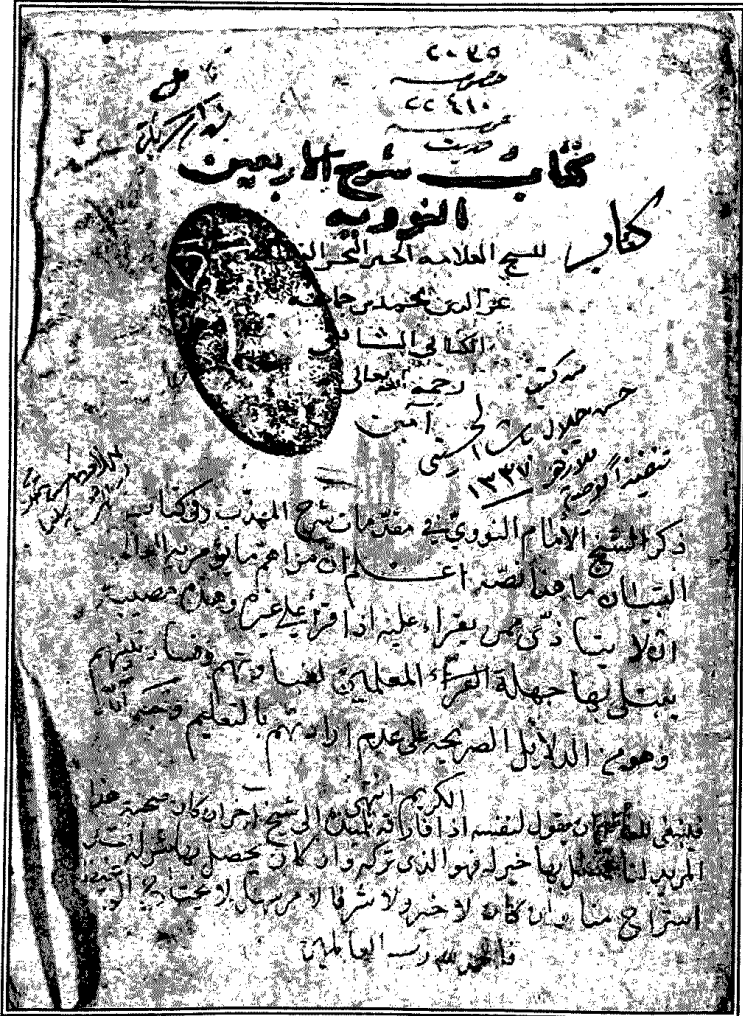 ٢٠٣٥
خصوصية
٢٢٤١٠
عمومية
حديث
كتاب شرح الاربعين
النوويه
كتاب
للشيخ العلامه الحبر البحر
عز الدين محمد بن جماعه
الكناني الشافعي
رحمه الله تعالى
آمين
من كتب
حسن جلال باشا الحسيني
للازهر
تنفيذا لوصيته
١٣٣٧
ذكر الشيخ الامام النووي في مقدمات شرح المهذب وفي كتاب
التبيان ما هذا نصه اعلم ان من اهم ما يؤمر به العالم
ان لا يتأذى ممن يقراء عليه اذا قرأ على غيره وهذه مصيبة
يبتلى بها جهلة القراء المعلمين لغباوتهم وفساد نيتهم
وهو من الدلايل الصريحه على عدم ارادتهم بالتعليم وجه الله
الكريم انتهى
فينبغي للمعلم ان يقول لنفسه اذا فارقه تلميذ الى شيخ اخر ان كان صحبة هذا
المريد لنا يحصل بها خير له فهو الذي تركه وان كان يحصل بها شر له فقد
استراح منا وان كان لا خير ولا شر فالامر سهل لا يحتاج الى
فالحمد لله رب العالمين